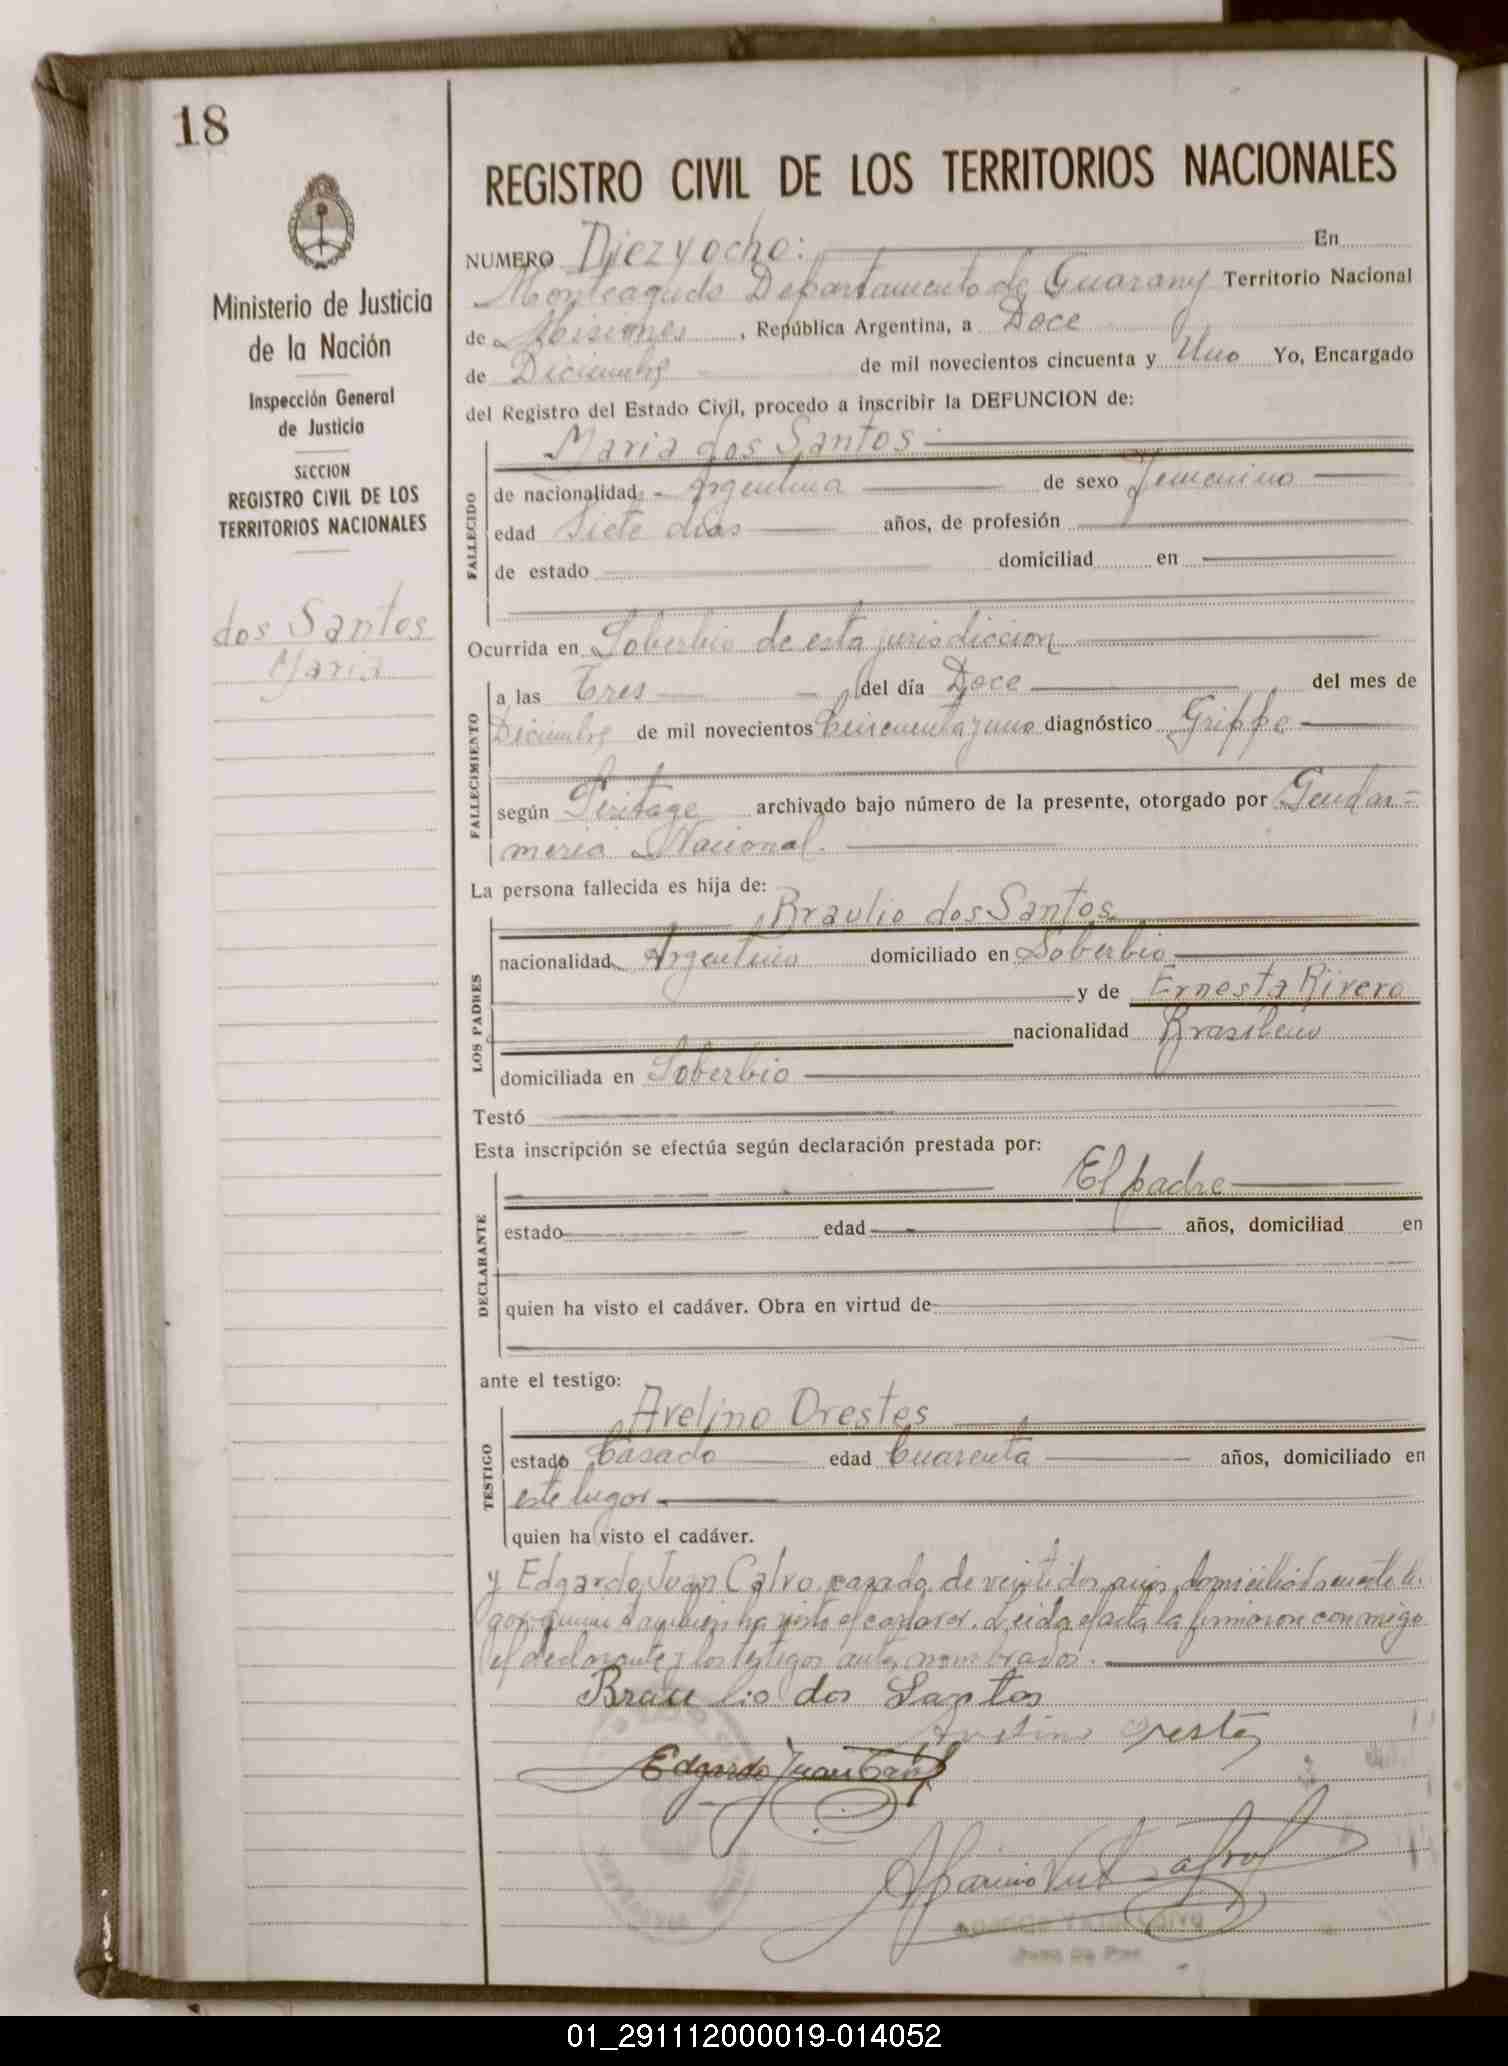 18
Ministerio de Justicia
de la Nación
Inspección General
de Justicia
SECCION
REGISTRO CIVIL DE LOS
TERRITORIOS NACIONALES
dos Santos
Maria
REGISTRO CIVIL DE LOS TERRITORIOS NACIONALES
NUMERO Diez y ocho: En
Monteagudo Departamento de Guarany Territorio Nacional
de Misiones, República Argentina, a Doce
de Diciembre de mil novecientos cincuenta y Uno Yo, Encargado
del Registro del Estado Civil, procedo a inscribir la DEFUNCION de:
Maria dos Santos
FALLECIDO
de nacionalidad Argentina de sexo Femenino
edad Siete dias años, de profesión
de estado domiciliad en
Ocurrida en Soberbio de esta jurisdiccion
FALLECIMIENTO
a las Tres del día Doce del mes de
Diciembre de mil novecientos Cincuenta y uno diagnóstico Grippe
según Peritage archivado bajo número de la presente, otorgado por Gendar-
meria Nacional.
La persona fallecida es hija de:
Braulio dos Santos
LOS PADRES
nacionalidad Argentino domiciliado en Soberbio
y de Ernesta Rivero
nacionalidad Brasileno
domiciliada en Soberbio
Testó
Esta inscripción se efectúa según declaración prestada por:
El padre
DECLARANTE
estado edad años, domiciliad en
quien ha visto el cadáver. Obra en virtud de
ante el testigo:
Avelino Orestes
TESTIGO
estado Casado edad Cuarenta años, domiciliado en
este lugar
quien ha visto el cadáver.
y Edgardo Juan Calvo, casado, de veintidos años, domiciliado en este lu-
gar quien tambien ha visto el cadaver. Leida el acta la firmaron conmigo
el declarante y los testigos antes nombrados.
Braulio dos Santos
Avelino Orestes
Edgardo Juan Calvo
Juez de Paz
01_291112000019-014052